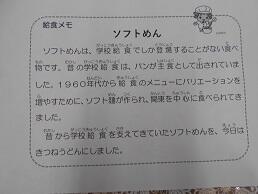 給食メモ
ソフトめん
ソフトめんは、学校給食でしか登場することがない食べ
物です。昔の学校給食は、パンが主食として出されていま
した。1960年代から給食のメニューにバリエーションを
増やすために、ソフト麺が作られ、関東を中心に食べられてき
ました。
昔から学校給食を支えてきていたソフトめんを、今日は
きつねうどんにしました。